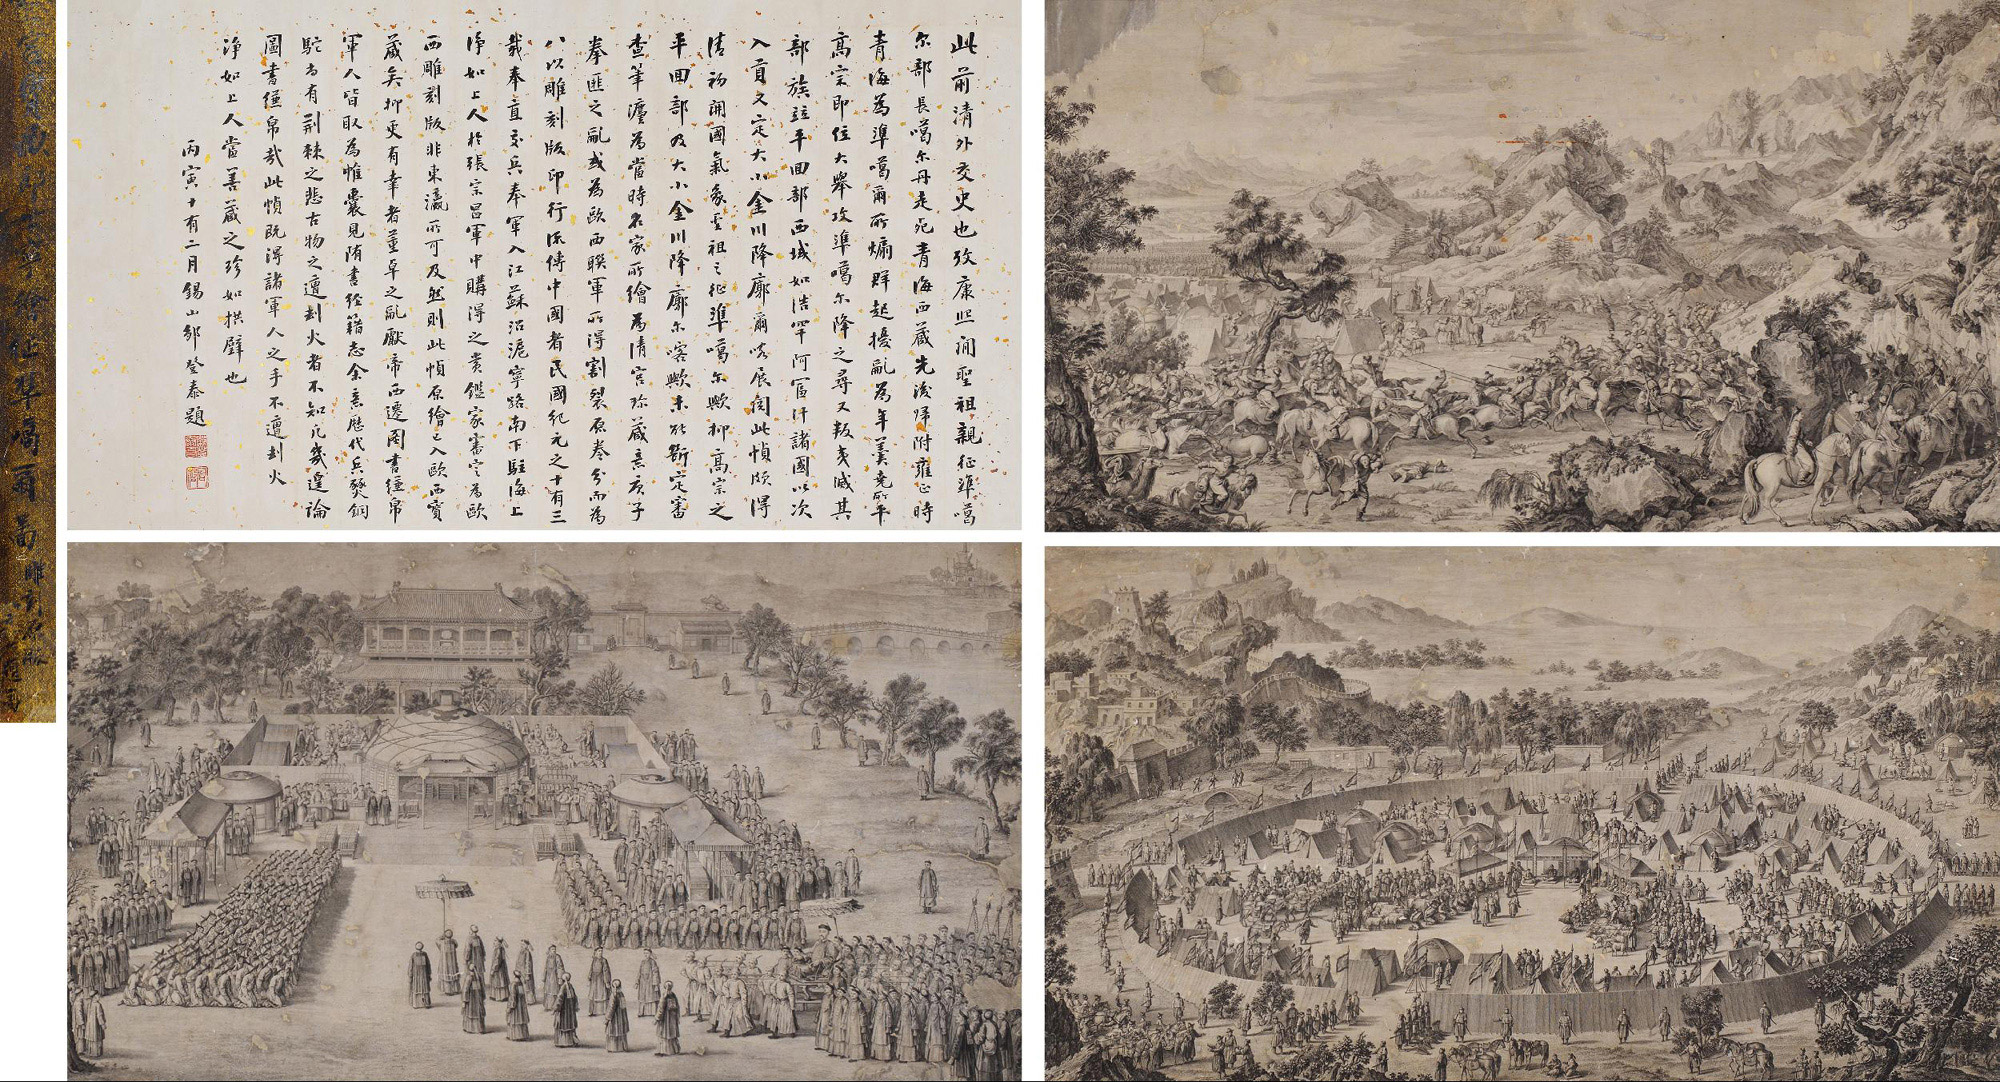 此前清外交史也考康熙间聖祖親征準噶
尔部長噶尔丹走死青海西藏先後歸附雍正時
青海為準噶爾所煽群起擾亂為年羹堯所平
高宗即位大舉攻準噶尔降之尋又叛夷滅其
部族並平回部西域如浩罕阿富汗諸國以次
入貢又定大小金川降廓爾喀展閱此幀頗得
清初開國氣象聖祖之征準噶尔歟抑高宗之
平回部及大小金川降廓尔喀歟未能斷定審
查筆瀍為當時名家所繪為清宮珍藏意庚子
拳匪之亂或為歐西聯軍所得割裂原卷分而為
八以雕刻版印行流傳中國者民國紀元之十有三
載奉直交兵奉軍入江蘇沿滬寧路南下駐海上
淨如上人於張宗昌軍中購得之賞鑑家審定為歐
西雕刻版非東瀛所可及然則此幀原繪已入歐西寶
藏矣抑更有幸者董卓之亂獻帝西遷圖書縑帛
軍人皆取為帷囊見隋書經籍志余意歷代兵燹銅
駝尚有荆棘之悲古物之遭刦火者不知凡幾遑論
圖書縑帛哉此幀既得諸軍人之手不遭刦火
淨如上人當善藏之珍如拱璧也
丙寅十有二月錫山鄒登泰題